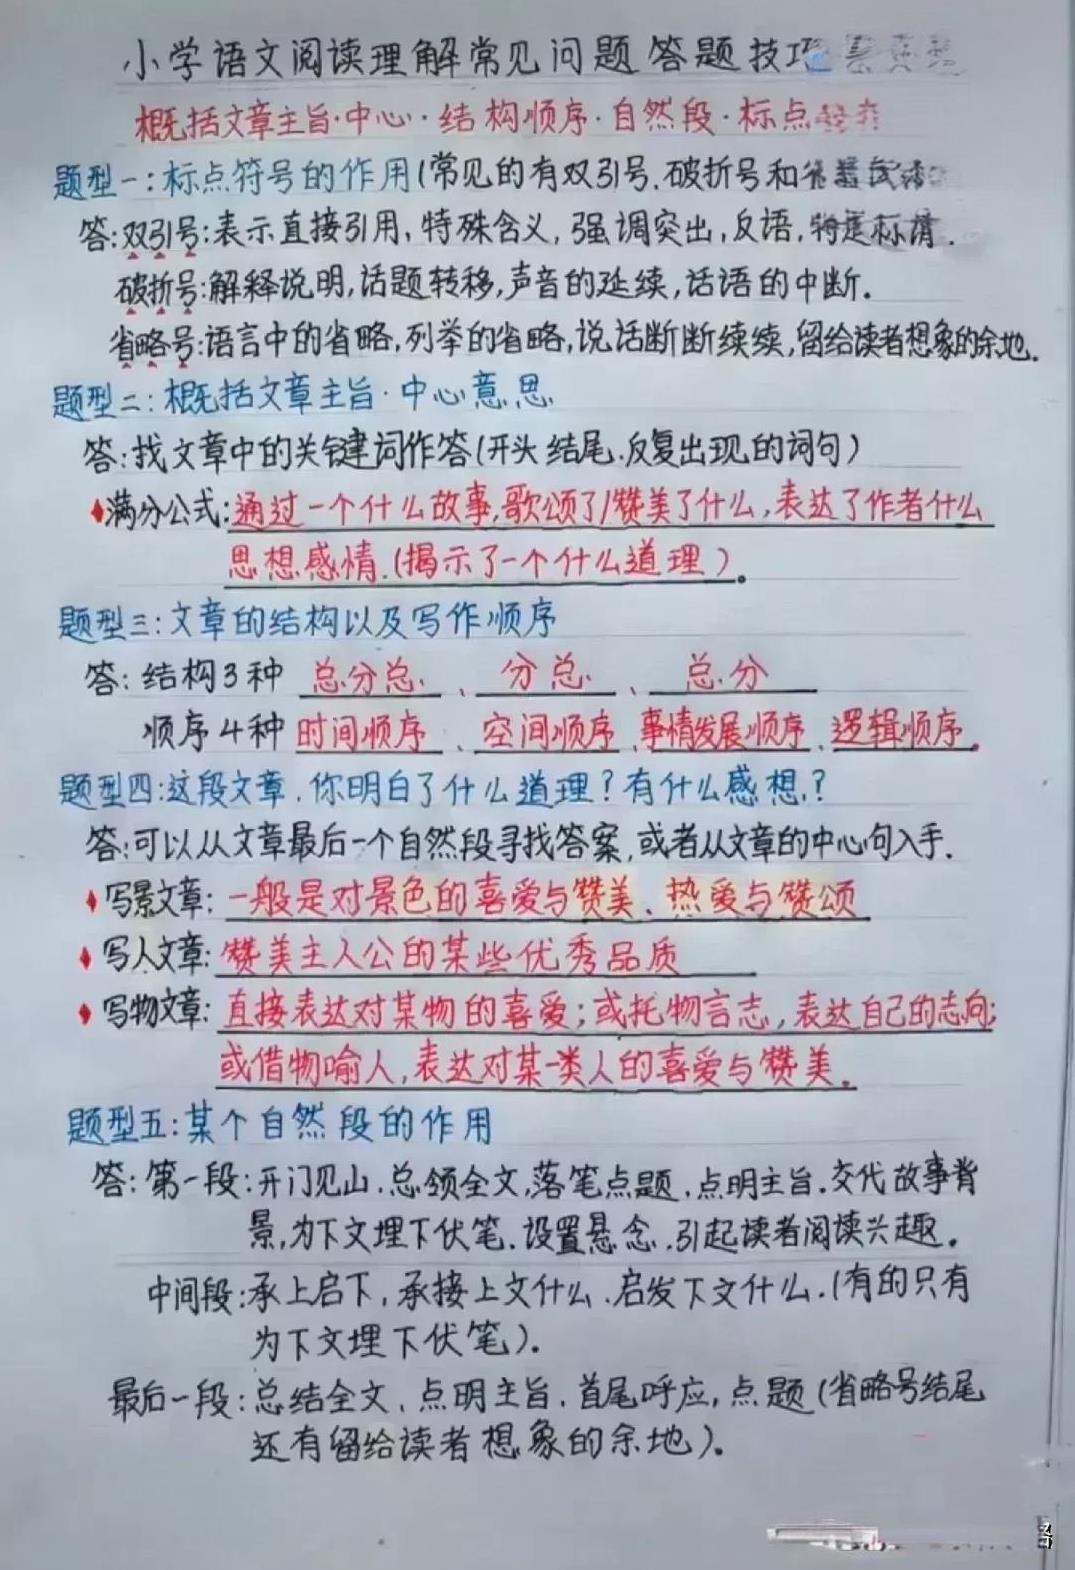 小学语文阅读理解常见问题答题技巧
概括文章主旨·中心·结构顺序·自然段·标点
题型一:标点符号的作用(常见的有双引号.破折号和
答:双引号:表示直接引用,特殊含义,强调突出,反语,特定称谓.
破折号:解释说明,话题转移,声音的延续,话语的中断.
省略号:语言中的省略,列举的省略,说话断断续续,留给读者想象的余地.
题型二:概括文章主旨·中心意思
答:找文章中的关键词作答(开头结尾.反复出现的词句)
♦满分公式:通过一个什么故事,歌颂了/赞美了什么,表达了作者什么
思想感情.(揭示了一个什么道理)。
题型三:文章的结构以及写作顺序
答:结构3种 总分总、分总、总分
顺序4种 时间顺序、空间顺序、事情发展顺序、逻辑顺序。
题型四:这段文章.你明白了什么道理?有什么感想?
答:可以从文章最后一个自然段寻找答案,或者从文章的中心句入手.
♦写景文章:一般是对景色的喜爱与赞美、热爱与赞颂
♦写人文章:赞美主人公的某些优秀品质
♦写物文章:直接表达对某物的喜爱;或托物言志,表达自己的志向;
或借物喻人,表达对某一类人的喜爱与赞美。
题型五:某个自然段的作用
答:第一段:开门见山.总领全文,落笔点题.点明主旨.交代故事背
景,为下文埋下伏笔.设置悬念.引起读者阅读兴趣。
中间段:承上启下,承接上文什么.启发下文什么.(有的只有
为下文埋下伏笔).
最后一段:总结全文.点明主旨.首尾呼应,点题(省略号结尾
还有留给读者想象的余地).